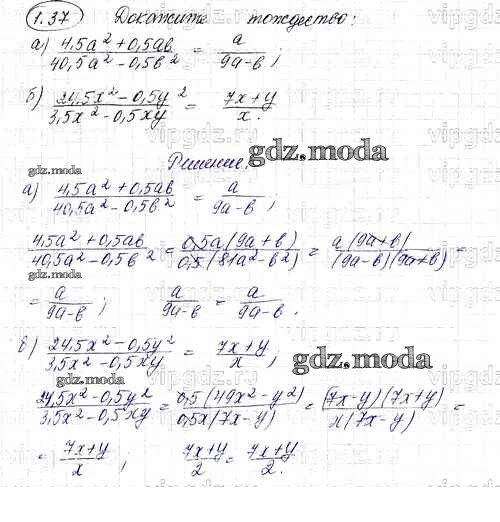 1.37 Докажите тождество:
а) (4,5a² + 0,5ab)/(40,5a² – 0,5b²) = a/(9a–b);
б) (24,5x² – 0,5y²)/(3,5x² – 0,5xy) = (7x+y)/x.
Решение.
gdz.moda
gdz.moda
а) (4,5a² + 0,5ab)/(40,5a² – 0,5b²) = a/(9a–b);
(4,5a² + 0,5ab)/(40,5a² – 0,5b²) = 0,5a(9a+b)/0,5(81a² – b²) = a(9a+b)/(9a–b)(9a+b) =
gdz.moda
= a/(9a–b); a/(9a–b) = a/(9a–b).
б) (24,5x² – 0,5y²)/(3,5x² – 0,5xy) = (7x+y)/x;
gdz.moda
gdz.moda
(24,5x² – 0,5y²)/(3,5x² – 0,5xy) = 0,5(49x² – y²)/0,5x(7x–y) = (7x–y)(7x+y)/x(7x–y) =
= (7x+y)/x; (7x+y)/2 = (7x+y)/2.